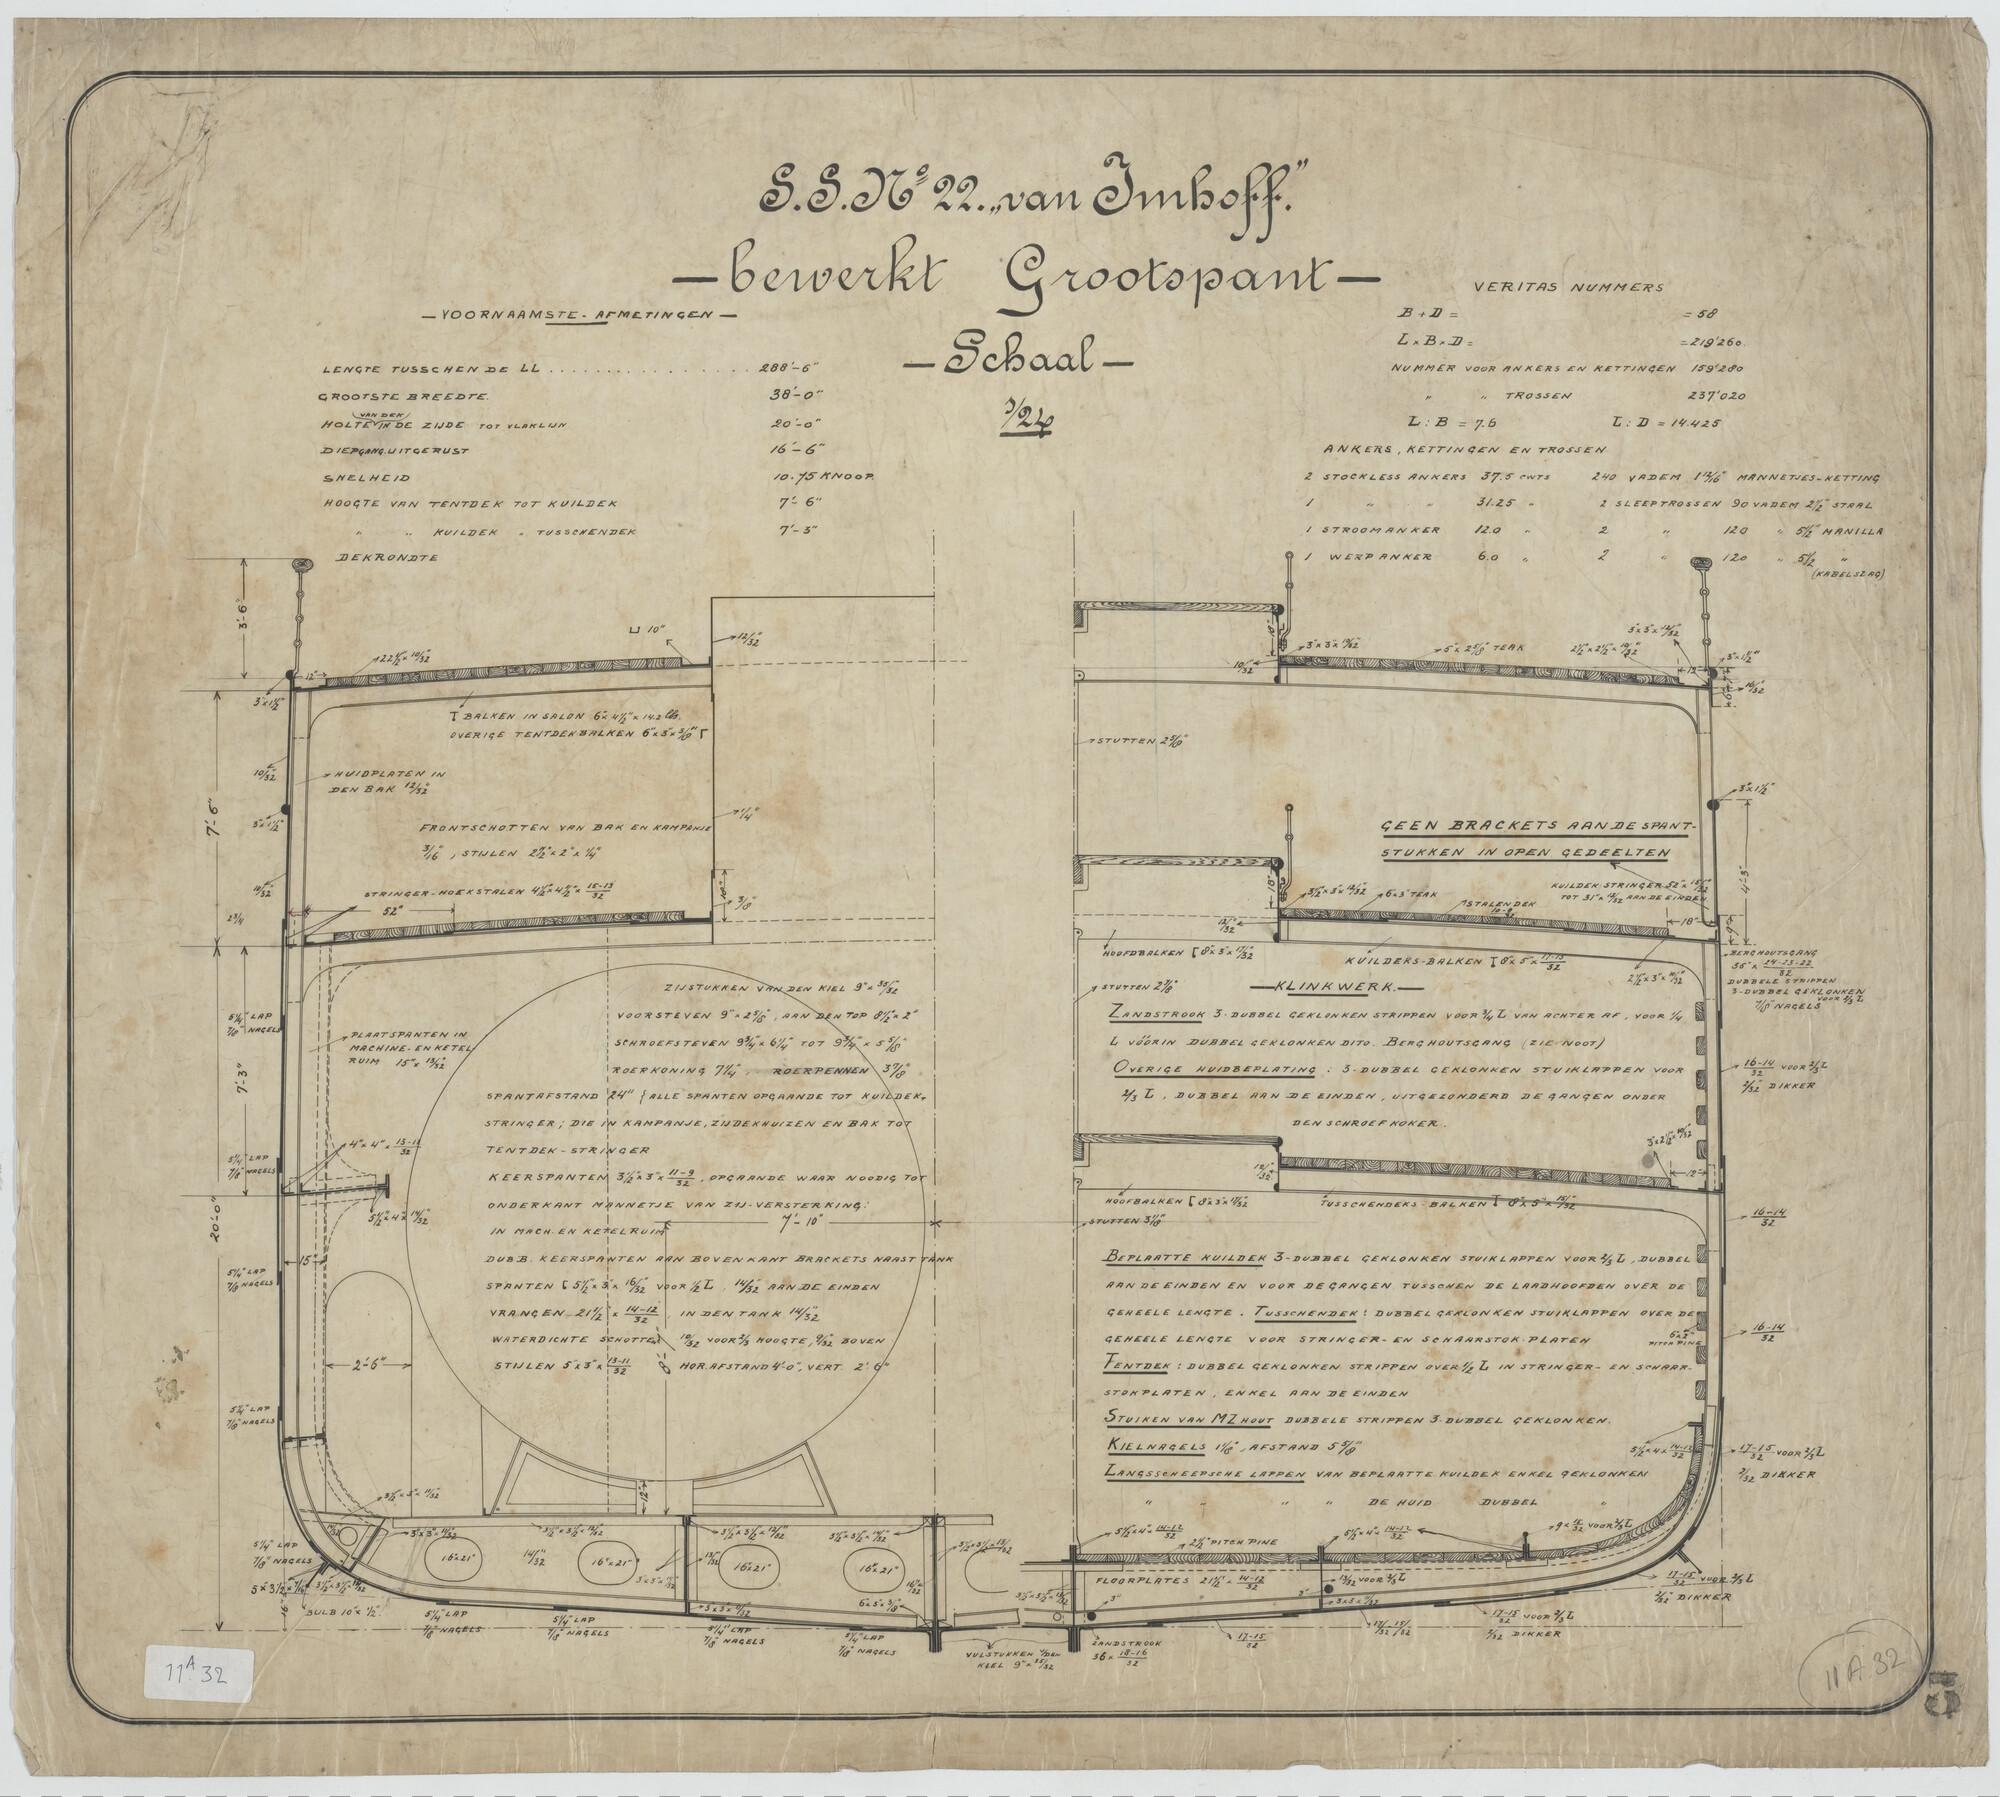 S.S. Nº 22. „van Imhoff."
— bewerkt Grootspant —
— Schaal —
1/24
— VOORNAAMSTE - AFMETINGEN —
LENGTE TUSSCHEN DE LL . . . . . . . . . . . . . . 288'-6"
GROOTSTE BREEDTE. 38'-0"
VAN DEK
HOLTE IN DE ZIJDE TOT VLAKLIJN 20'-0"
DIEPGANG. UITGERUST 16'-6"
SNELHEID 10.75 KNOOP.
HOOGTE VAN TENTDEK TOT KUILDEK 7'-6"
" " KUILDEK " TUSSCHENDEK 7'-3"
DEKRONDTE
VERITAS NUMMERS
B + D = = 58
L × B × D = = 219'260.
NUMMER VOOR ANKERS EN KETTINGEN 159'280
" " TROSSEN 237'020
L : B = 7.6 L : D = 14.425
ANKERS, KETTINGEN EN TROSSEN
2 STOCKLESS ANKERS 37.5 CWTS 240 VADEM 1 12/16" MANNETJES-KETTING
1 " " 31.25 " 2 SLEEPTROSSEN 90 VADEM 2 1/2" STAAL
1 STROOMANKER 12.0 " 2 " 120 " 5 1/2" MANILLA
1 WERPANKER 6.0 " 2 " 120 " 5 1/2 "
(KABELSLAG)
3'-6"
12"
22 1/2" × 10/32"
⊔ 10"
12/32"
3" × 1 1/2"
T BALKEN IN SALON 6" × 4 1/2" × 14.2 lbs.
OVERIGE TENTDEKBALKEN 6" × 3" × 3/8"
10/32"
HUIDPLATEN IN
DEN BAK 12/32"
7'-6"
3" × 1 1/2"
1/4"
FRONTSCHOTTEN VAN BAK EN KAMPANJE
3/16", STIJLEN 2 1/2" × 2" × 1/4"
STRINGER-HOEKSTALEN 4 1/2" × 4 1/2" × 15-13/32
52"
2 3/4
3/8"
ZIJSTUKKEN VAN DEN KIEL 9" × 35/32"
VOORSTEVEN 9" × 2 5/8", AAN DEN TOP 8 1/2" × 2"
SCHROEFSTEVEN 9 3/4" × 6 1/4" TOT 9 3/4" × 5 5/8"
ROERKONING 7 1/4", ROERPENNEN 3 7/8"
SPANTAFSTAND 24" { ALLE SPANTEN OPGAANDE TOT KUILDEK-
STRINGER; DIE IN KAMPANJE, ZIJDEKHUIZEN EN BAK TOT
TENTDEK-STRINGER
KEERSPANTEN 3 1/2" × 3" × 11-9/32, OPGAANDE WAAR NOODIG TOT
ONDERKANT MANNETJE VAN ZIJ-VERSTERKING.
IN MACH. EN KETELRUIM
7'-10"
DUBB. KEERSPANTEN AAN BOVENKANT BRACKETS NAAST TANK
SPANTEN [ 5 1/2" × 3" × 16/32" VOOR 1/2 L, 14/32" AAN DE EINDEN
VRANGEN 21 1/2" × 14-12/32 IN DEN TANK 14/32"
WATERDICHTE SCHOTTEN 10/32" VOOR 2/3 HOOGTE, 9/32" BOVEN
STIJLEN 5" × 3" × 13-11/32 HOR. AFSTAND 4'-0", VERT. 2'6"
PLAATSPANTEN IN
MACHINE- EN KETEL
RUIM 15" × 13/32"
5 1/4" LAP
7/8" NAGELS
7'-3"
4" × 4" × 13-11/32
5 1/4" LAP
7/8" NAGELS
5 1/2" × 4" × 14/32"
20'-0"
15"
5 1/4" LAP
7/8" NAGELS
2'-6"
5 1/4" LAP
7/8" NAGELS
12"
16" × 21"
14/32"
16" × 21"
16 × 21"
16" × 21"
5 1/4" LAP
7/8" NAGELS
BULB 10" × 1/2"
5 1/4" LAP
7/8" NAGELS
5 1/4" LAP
7/8" NAGELS
5 1/4" LAP
7/8" NAGELS
5 1/4" LAP
7/8" NAGELS
VULSTUKKEN V/DEN
KIEL 9" × 35/32"
3" × 3" × 10/32
5" × 2 5/8" TEAK
3" × 3" × 12/32"
12"
3" × 1 1/2"
STUTTEN 2 5/8"
3" × 1 1/2"
GEEN BRACKETS AAN DE SPANT-
STUKKEN IN OPEN GEDEELTEN
4'-3"
6 × 3" TEAK
STALEN DEK
18"
HOOFDBALKEN [ 8" × 3" × 17/32"
KUILDEKS-BALKEN [ 8" × 3" × 17-15/32
STUTTEN 2 7/8"
BERGHOUTSGANG
35" × 24-23-22/32
DUBBELE STRIPPEN
3-DUBBEL GEKLONKEN
7/8" NAGELS
— KLINKWERK. —
ZANDSTROOK 3-DUBBEL GEKLONKEN STRIPPEN VOOR 3/4 L VAN ACHTER AF, VOOR 1/4
L VÓÓRIN DUBBEL GEKLONKEN DITO. BERGHOUTSGANG (ZIE NOOT)
OVERIGE HUIDBEPLATING : 3-DUBBEL GEKLONKEN STUIKLAPPEN VOOR
2/3 L, DUBBEL AAN DE EINDEN, UITGEZONDERD DE GANGEN ONDER
DEN SCHROEFKOKER.
16-14/32 VOOR 2/3 L
2/32" DIKKER
12"
HOOFBALKEN [ 8" × 3" × 17/32"
TUSSCHENDEKS-BALKEN [ 8" × 3" × 15/32"
STUTTEN 3 1/8"
16-14/32
BEPLAATTE KUILDEK 3-DUBBEL GEKLONKEN STUIKLAPPEN VOOR 2/3 L, DUBBEL
AAN DE EINDEN EN VOOR DE GANGEN TUSSCHEN DE LAADHOOFDEN OVER DE
GEHEELE LENGTE. TUSSCHENDEK : DUBBEL GEKLONKEN STUIKLAPPEN OVER DE
GEHEELE LENGTE VOOR STRINGER- EN SCHAARSTOK PLATEN
TENTDEK : DUBBEL GEKLONKEN STRIPPEN OVER 1/2 L IN STRINGER- EN SCHAAR-
STOKPLATEN, ENKEL AAN DE EINDEN
STUIKEN VAN MZHOUT DUBBELE STRIPPEN 3-DUBBEL GEKLONKEN.
KIELNAGELS 1 1/8", AFSTAND 5 5/8"
LANGSSCHEEPSCHE LAPPEN VAN BEPLAATTE KUILDEK ENKEL GEKLONKEN
" " " " DE HUID DUBBEL "
PITCH PINE
16-14/32
5 1/2" × 4" × 14-12/32
17-15/32 VOOR 2/3 L
2/32 DIKKER
5 1/2" × 4" × 14-12/32
2 1/2" PITCH PINE
5 1/2" × 4" × 14-12/32
FLOORPLATES 21 1/2" × 14-12/32
3"
17-15/32 VOOR 2/3 L
2/32" DIKKER
17-15/32 VOOR 2/3 L
2/32" DIKKER
17-15/32
ZANDSTROOK
36 × 18-16/32
11A 32
11 A. 32